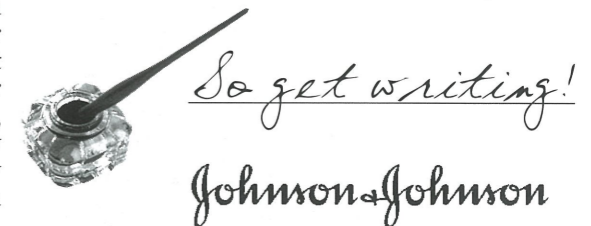 So get writing!
Johnson & Johnson